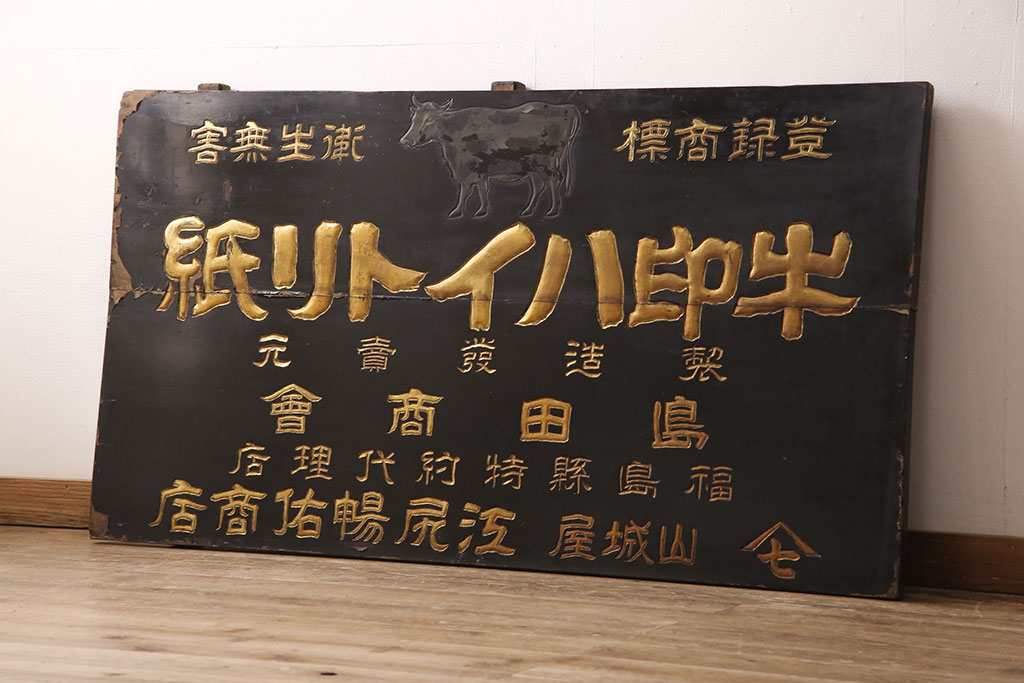 登録商標
衛生無害
牛印ハイトリ紙
製造發賣元
島田商會
福島縣特約代理店
七 山城屋 江尻暢佑商店